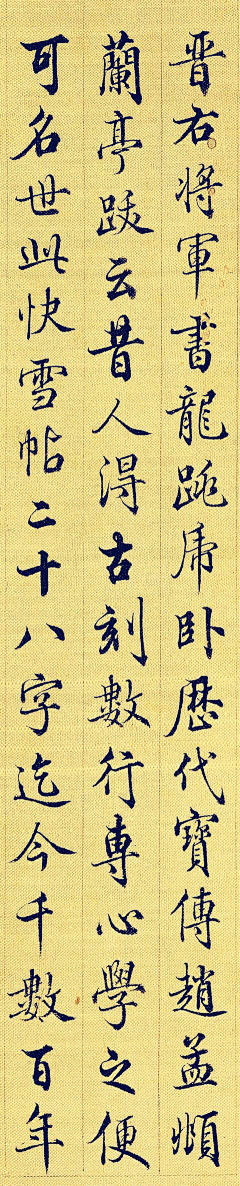 晋右将軍書龍跳虎卧歷代寶傳趙孟頫
蘭亭跋云昔人得古刻數行專心學之便
可名世此快雪帖二十八字迄今千數百年